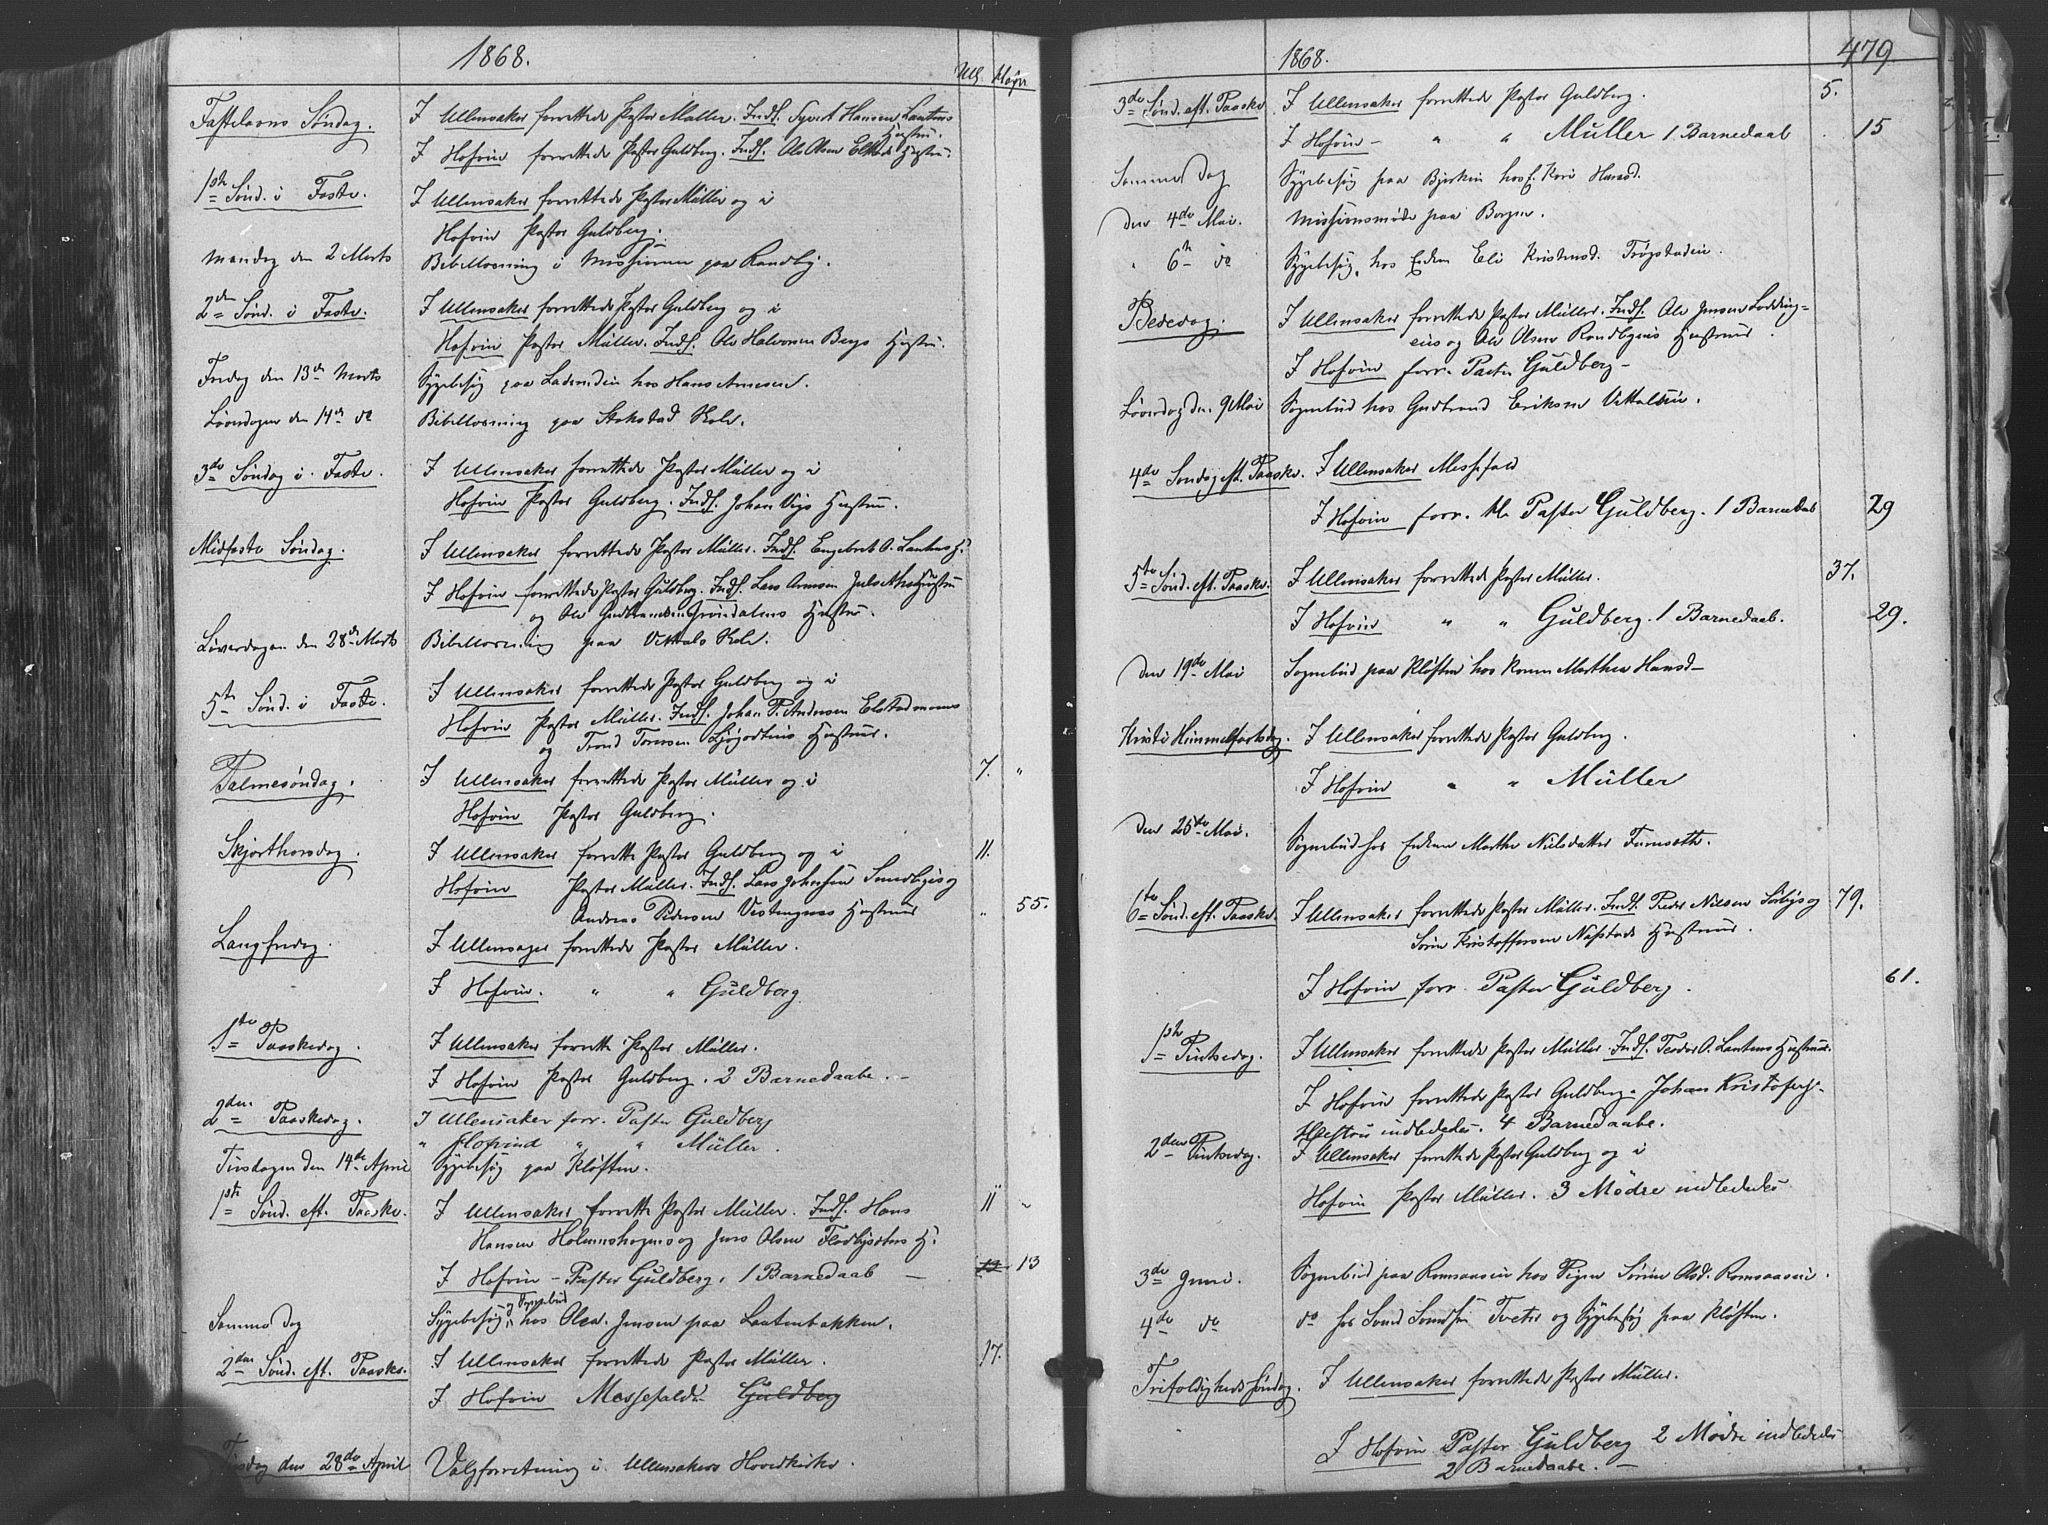 1868.
Ull. Høfv.
Fastelavns Søndag. I Ullensaker forrettede Pastor Müller. Indl. Syvert Hansen Lautens
Hustru.
I Hofvin forrettede Pastor Guldberg. Indl. Ole Olsen Hustru.
1ste Sønd. i Faste. I Ullensaker forrettede Pastor Müller og i
Hofvin Pastor Guldberg.
Mandag den 2 Marts Bibellæsning i Missionen paa Randby.
2den Sønd. i Faste. I Ullensaker forrettede Pastor Guldberg og i
Hofvin Pastor Müller. Indl. Ole Halvorsen Bergs Hustru.
Fredag den 13de Marts Sygebesøg paa hos Hans Arnesen.
Løverdagen den 14de do Bibellæsning paa Stokstad Skole.
3die Søndag i Faste. I Ullensaker forrettede Pastor Müller og i
Hofvin Pastor Guldberg. Indl. Johan Hustru.
Midfaste Søndag. I Ullensaker forrettede Pastor Müller. Indl. Engebret O. Lautens H.
I Hofvin forrettede Pastor Guldberg. Indl. Lars Arnesen Hustru
og Ole Gudbrandsen Grindalens Hustru.
Løverdagen den 28de Marts Bibellæsning paa Vettals Skole.
5te Sønd. i Faste. I Ullensaker forrettede Pastor Guldberg og i
Hofvin Pastor Müller. Indl. Johan P. Andersen
og Trond Hustruer.
Palmesøndag. I Ullensaker forrettede Pastor Müller og i 7. "
Hofvin Pastor Guldberg.
Skjærthorsdag. I Ullensaker forrette Pastor Guldberg og i 11.
Hofvin Pastor Müller. Indl. Lars Johnsen og
Andreas Pedersen Hustruer " 55.
Langfredag. I Ullensager forrettede Pastor Müller.
I Hofvin. " " Guldberg
1ste Paaskedag. I Ullensaker forrette Pastor Müller.
I Hofvin Pastor Guldberg. 2 Barnedaabe. –
2den Paaskedag. I Ullensaker forr. Pastor Guldberg
" Hofvind " " Müller.
Tirsdagen den 14de April Sygebesøg paa Kløften.
1ste Sønd. eft. Paaske. I Ullensaker forrette Pastor Müller. Indl. Hans 11 "
Hansen Holmshagens og Jens Olsen H.
I Hofvin – Pastor Guldberg. 1 Barnedaab – 13 13
Samme Dag Sygebesøg og Sognebud hos Jensen paa Lautenbakken.
2den Sønd. eft. Paaske. I Ullensaker forrettede Pastor Müller. 17.
I Hofvin Messefald. Guldberg
Tirsdag den 28de April Valgforretning i Ullensakers Hovedkirke.
1868. 479
3die Sønd. eft. Paaske I Ullensaker forrettede Pastor Guldberg. 5.
I Hofvin – " " Müller 1 Barnedaab . 15
Samme Dag Sygebesøg paa Bjerkin hos E. Kari Hansd.
den 4de Mai. Missionsmøde paa Borgen.
" 6te do Sygebesøg hos Enken Eli Kristensd. Trøgstadeie.
Bededag. I Ullensaker forrettede Pastor Müller. Indl. Ole Jensen
eies og Ole Olsen Randbyeies Hustruer.
I Hofvin forr. Pastor Guldberg –
Løverdag den 9 Mai Sognebud hos Gudbrand Eriksen
4de Søndag eft. Paaske. I Ullensaker Messefald
I Hofvin forr. Hr. Pastor Guldberg. 1 Barnedaab 29
5te Sønd. eft. Paaske. I Ullensaker forrettede Pastor Müller. 37.
I Hofvin " " Guldberg. 1 Barnedaab. 29.
den 19de Mai Sognebud paa Kløften hos Konen Marthea Hansd –
Kristi Himmelfartsdag. I Ullensaker forrettede Pastor Guldberg.
I Hofvin " " Müller
den 25de Mai. Sognebud hos Enken Marthe Nielsdatter Furuseth.
6te Sønd. eft. Paaske. I Ullensaker forrettede Pastor Müller. Indl. Peder Nilsen Sørbys og 79.
Sørin Kristoffersen Hustruer.
I Hofvin forr. Pastor Guldberg. 61.
1ste Pintsedag. I Ullensaker forrettede Pastor Müller. Indl. Teodor O. Lautens Hustrue.
I Hofvin forrettede Pastor Guldberg. Johan Kristofers
Hustru indlededes. 4 Barnedaabe.
2den Pintsedag. I Ullensaker forrettede Pastor Guldberg og i
Hofvin Pastor Müller. 3 Mødre indlededes
3die Juni. Sognebud paa Romsaaseie hos Pigen Sørine Olsd. Romsaaseie.
4de do do hos Tveter og Sygebesøg paa Kløften.
Trefoldigheds Søndag. I Ullensaker forrettede Pastor Müller.
I Hofvin Pastor Guldberg 2 Mødre indlededes
2 Barnedaabe. –